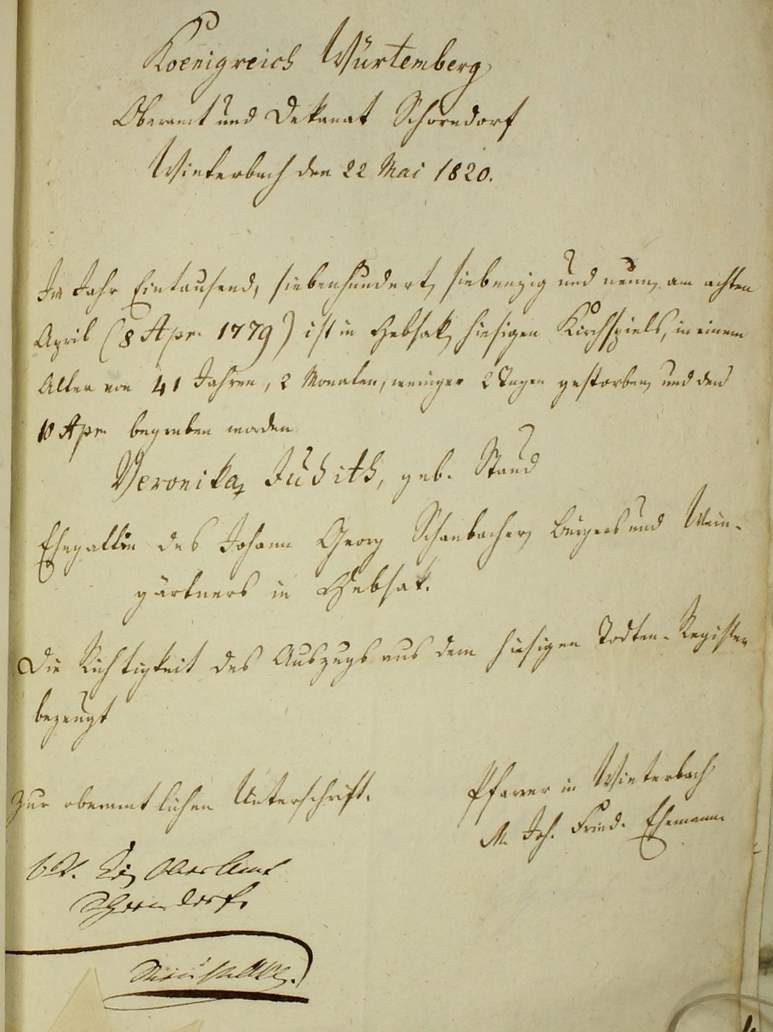 Koenigreich Würtemberg
Oberamt und Dekanat Schorndorf
Winterbach den 22 Mai 1820.
Im Jahr Eintausend, siebenhundert, siebenzig und neun, am achten
April (8 Apr. 1779) ist in Hebsak, hiesigen Kirchspiels, in einem
Alter von 41 Jahren, 2 Monaten, weniger 2 Tagen gestorben, und den
10 Apr. begraben worden
Veronika, Judith, geb. Staud
Ehegattin des Johann Georg Schanbacher, Bürgers und Wein-
gärtners in Hebsak.
Die Richtigkeit des Auszugs aus dem hiesigen Todten-Register
bezeugt
Pfarrer in Winterbach
M. Joh. Fried. Ehemann
Zur oberamtlichen Unterschrift.
Oberamt
Schorndorf